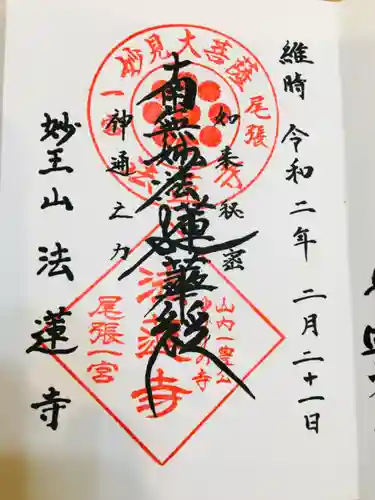 維時 令和二年 二月二十一日
如来秘密
南無妙法蓮華経
神通之力
妙王山 法蓮寺
妙見大菩薩
尾張
一
法
山内一豊公
の寺
法蓮寺
尾張一宮